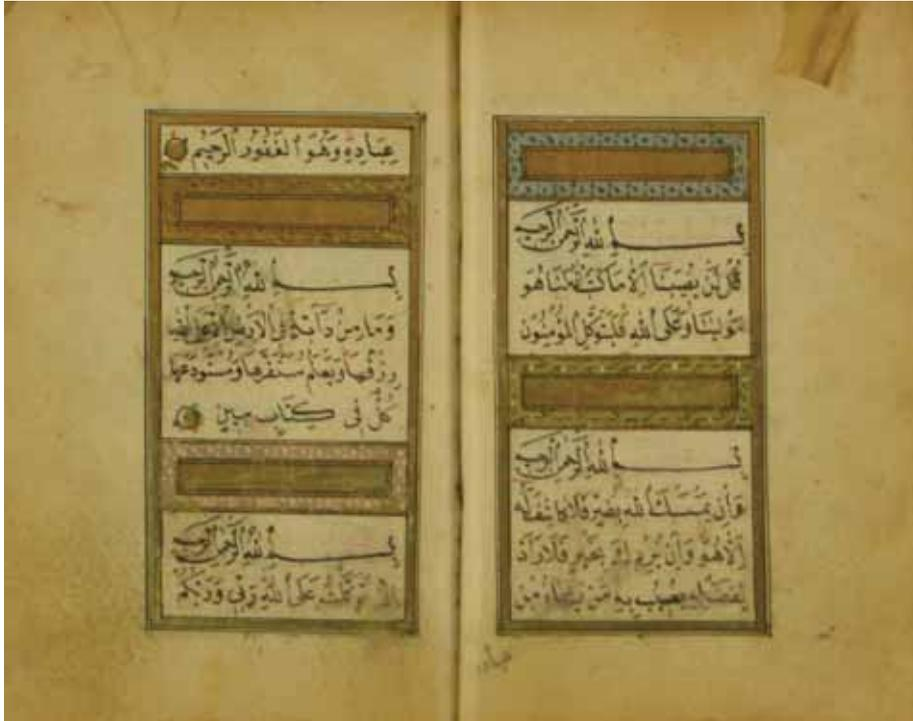 بسم الله الرحمن الرحيم
قُل لَّن يُصِيبَنَا إِلَّا مَا كَتَبَ اللَّهُ لَنَا هُوَ
مَوْلَينَا وَعَلَى اللَّهِ فَلْيَتَوَكَّلِ الْمُؤْمِنُونَ
بسم الله الرحمن الرحيم
وَإِن يَمْسَسْكَ اللَّهُ بِضُرٍّ فَلَا كَاشِفَ لَهُ
إِلَّا هُوَ وَإِن يُرِدْكَ بِخَيْرٍ فَلَا رَادَّ
لِفَضْلِهِ يُصِيبُ بِهِ مَن يَشَاءُ مِنْ
عباده
عِبَادِهِ وَهُوَ الْغَفُورُ الرَّحِيمُ
بسم الله الرحمن الرحيم
وَمَا مِن دَابَّةٍ فِي الْأَرْضِ إِلَّا عَلَى اللَّهِ
رِزْقُهَا وَيَعْلَمُ مُسْتَقَرَّهَا وَمُسْتَوْدَعَهَا
كُلٌّ فِي كِتَابٍ مُبِينٍ
بسم الله الرحمن الرحيم
إِنِّي تَوَكَّلْتُ عَلَى اللَّهِ رَبِّي وَرَبِّكُمْ